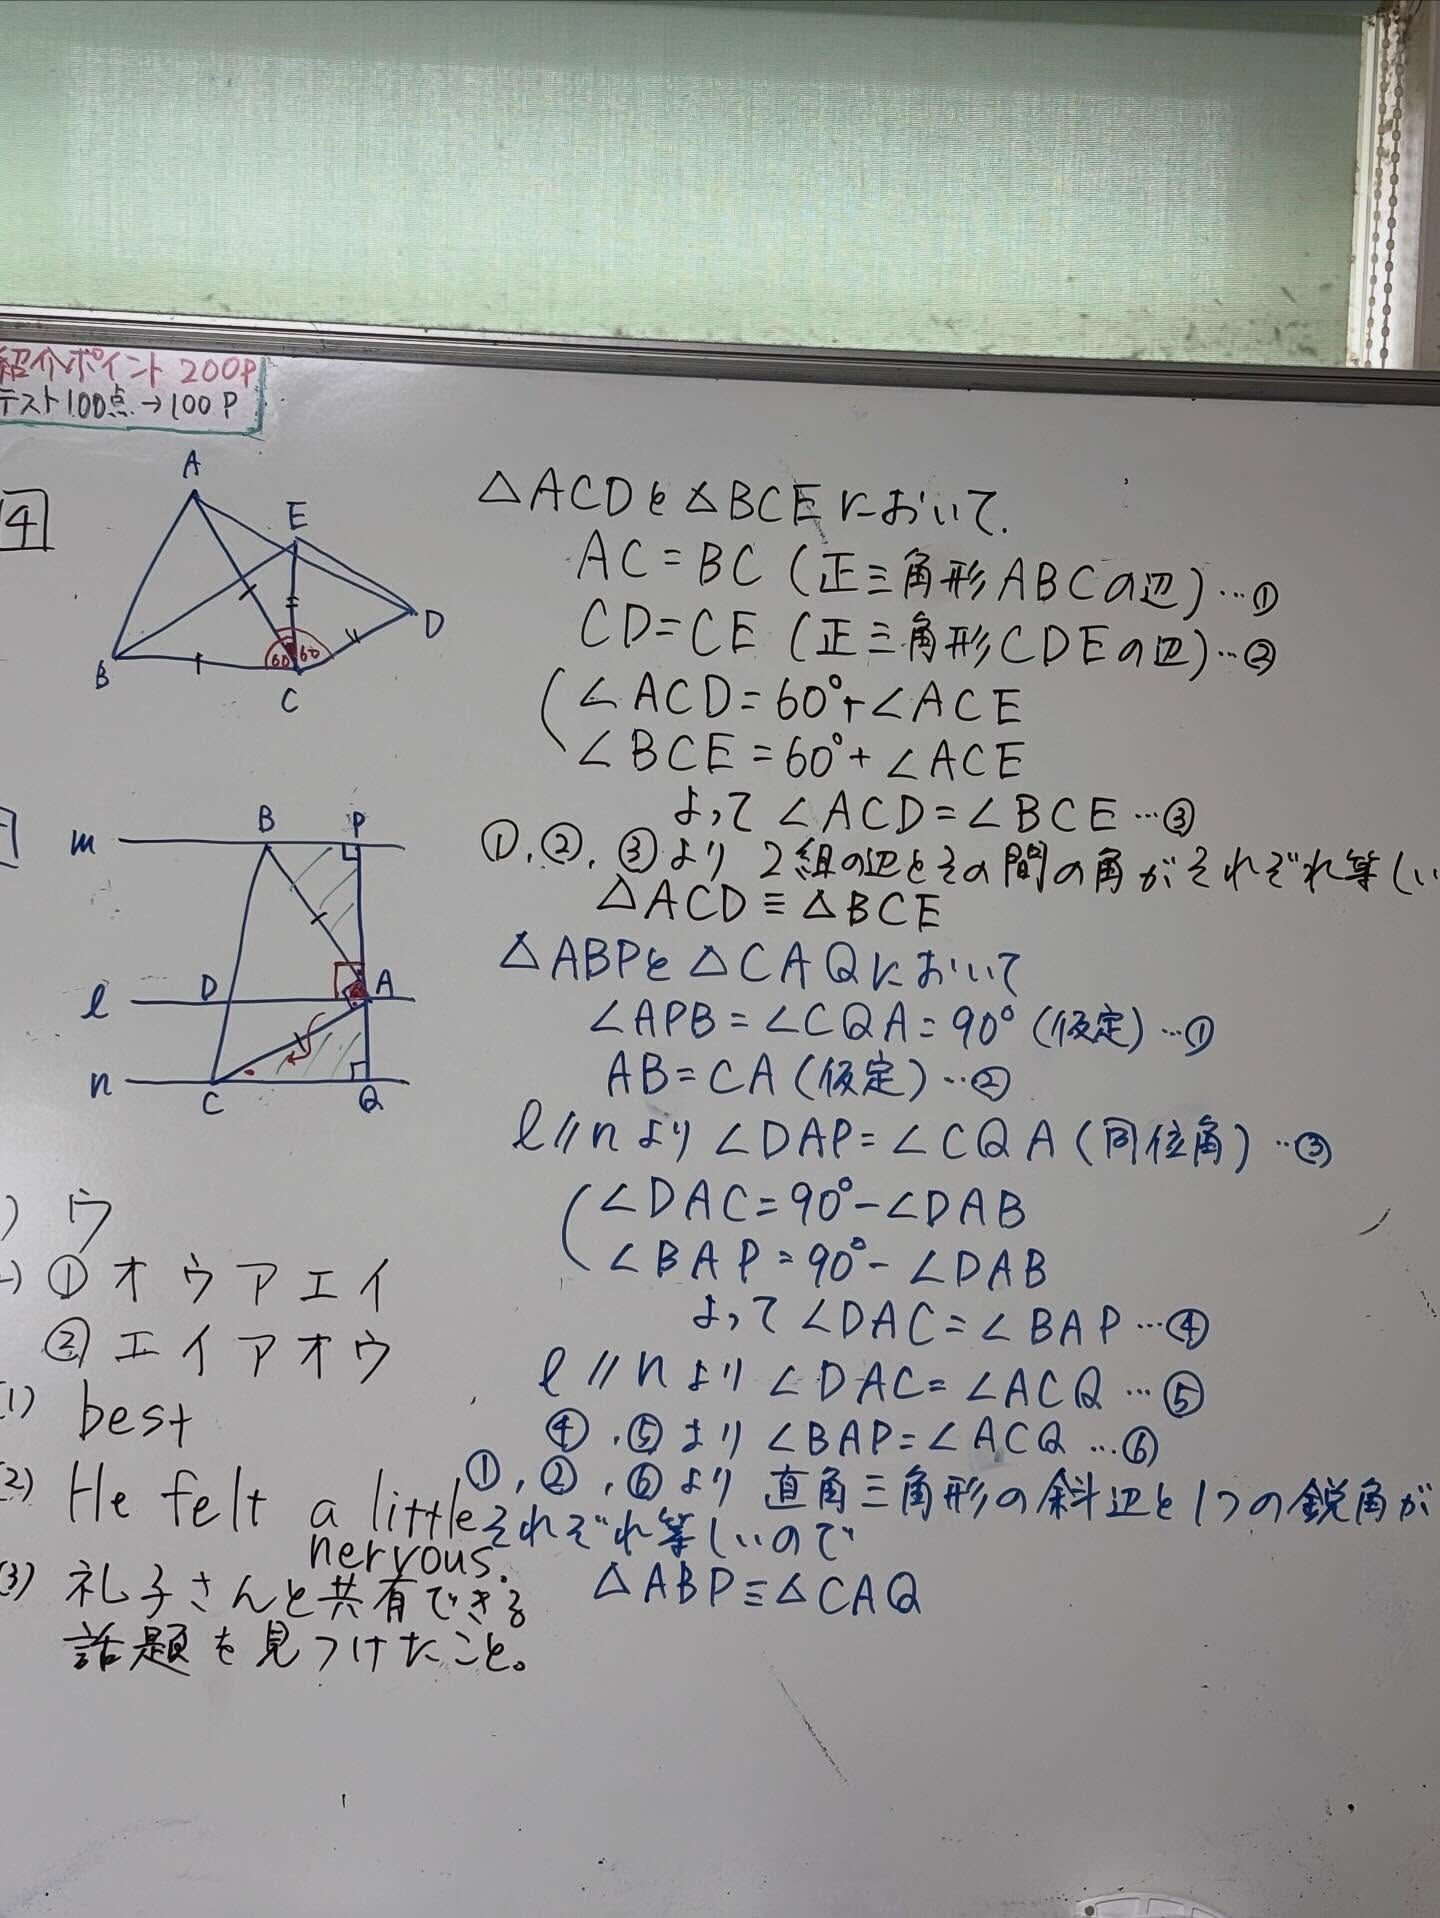 紹介ポイント 200P
テスト100点→100P
4
A
E
D
B
C
60
60
△ACDと△BCEにおいて.
AC=BC (正三角形ABCの辺)…①
CD=CE (正三角形CDEの辺)…②
∠ACD=60°+∠ACE
∠BCE=60°+∠ACE
よって∠ACD=∠BCE…③
①,②,③より 2組の辺とその間の角がそれぞれ等しい
△ACD≡△BCE
m
B
P
l
D
A
n
C
Q
△ABPと△CAQにおいて
∠APB=∠CQA=90°(仮定)…①
AB=CA(仮定)…②
l//nより∠DAP=∠CQA(同位角)…③
∠DAC=90°-∠DAB
∠BAP=90°-∠DAB
よって∠DAC=∠BAP…④
l//nより∠DAC=∠ACQ…⑤
④,⑤より∠BAP=∠ACQ…⑥
①,②,⑥より 直角三角形の斜辺と1つの鋭角が
それぞれ等しいので
△ABP≡△CAQ
) ウ
) ① オウアエイ
② エイアオウ
(1) best
(2) He felt a little
nervous.
(3) 礼子さんと共有できる
話題を見つけたこと。